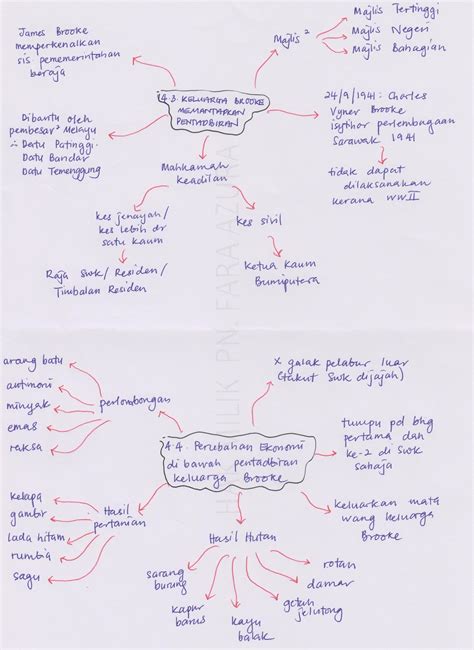 James Brooke
memperkenalkan
sis pememerintahan
beraja
Majlis ²
Majlis Tertinggi
Majlis Negeri
Majlis Bahagian
4.3. KELUARGA BROOKE
MEMANTAPKAN
PENTADBIRAN
24/9/1941: Charles
Vyner Brooke
isytihar perlembagaan
Sarawak 1941
tidak dapat
dilaksanakan
kerana WWII
Dibantu oleh
pembesar² Melayu
∴ Datu Patinggi
Datu Bandar
Datu Temenggung
Mahkamah
keadilan
kes jenayah/
kes lebih dr
satu kaum
Raja Swk/Residen/
Timbalan Residen
kes sivil
ketua kaum
Bumiputera
HAK MILIK PN. FARA AZURA
4.4. Perubahan Ekonomi
di bawah pentadbiran
keluarga Brooke
perlombongan
arang batu
antimoni
minyak
emas
raksa
x galak pelabur luar
(takut Swk dijajah)
tumpu pd bhg
pertama dan
ke-2 di Swk
sahaja
keluarkan mata
wang keluarga
Brooke
Hasil
pertanian
kelapa
gambir
lada hitam
rumbia
sagu
Hasil Hutan
sarang
burung
kapur
barus
kayu
balak
getah
jelutong
damar
rotan